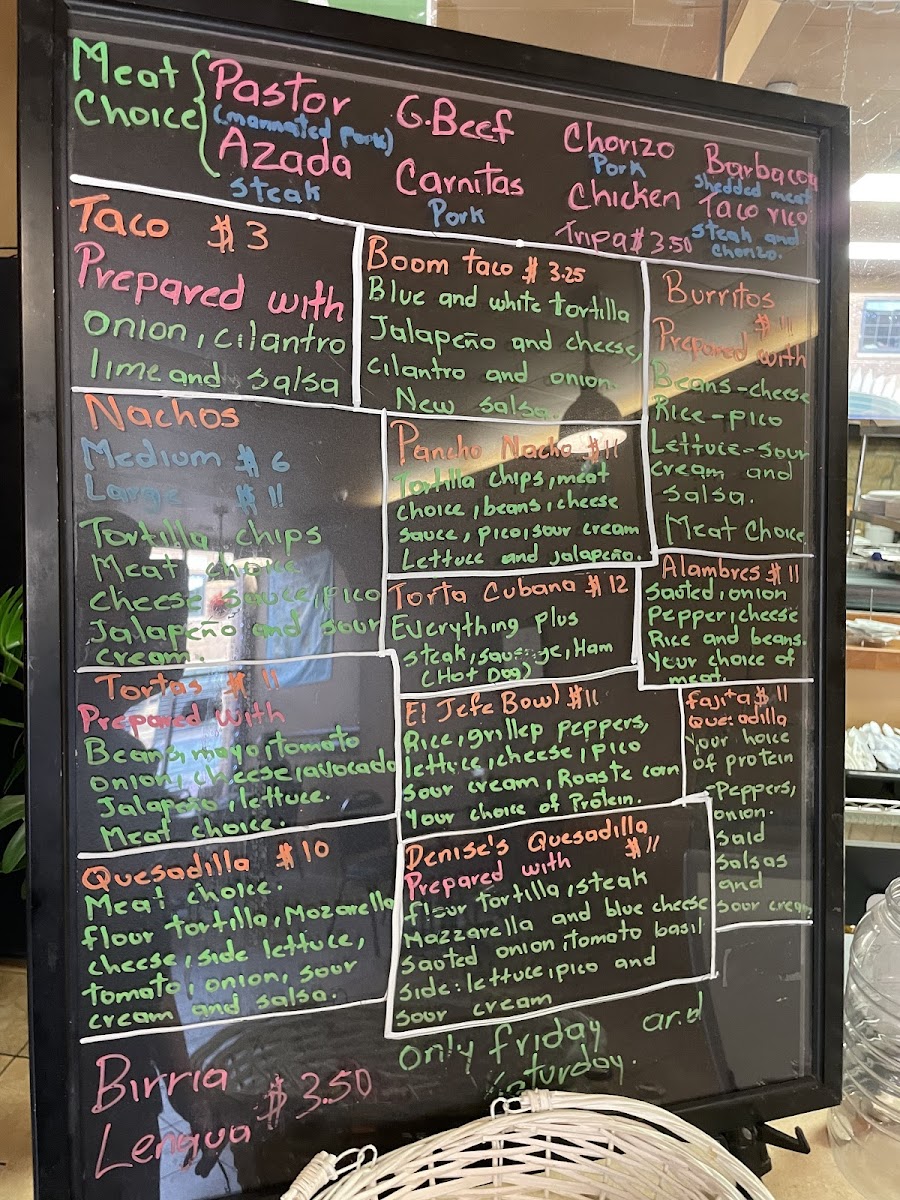 Meat Choice
Pastor
(marinated pork)
Azada
steak
G.Beef
Carnitas
Pork
Chorizo
Pork
Chicken
Tripa $3.50
Barbacoa
Shedded meat
Taco rico
steak and
chorizo.
Taco $3
Prepared with
onion, cilantro
lime and salsa
Boom taco $3.25
Blue and white tortilla
Jalapeño and cheese,
cilantro and onion
New salsa.
Burritos
$11
Prepared with
Beans-cheese
Rice-pico
Lettuce-sour
cream and
salsa.
Meat Choice
Nachos
Medium $6
Large $11
Tortilla chips
Meat choice
cheese sauce, pico
Jalapeño and sour
cream.
Pancho Nacho $11
Tortilla chips, meat
choice, beans, cheese
sauce, pico, sour cream
Lettuce and jalapeño.
Torta Cubana $12
Everything plus
steak, sausage, Ham
(Hot Dog)
Alambres $11
Sauted, onion
Pepper, cheese
Rice and beans.
Your choice of
meat.
Tortas $11
Prepared with
Beans, mayo, tomato
onion, cheese, avocado
Jalapeño, lettuce.
Meat choice.
El Jefe Bowl $11
Rice, grillep peppers,
lettuce, cheese, pico
sour cream, Roaste corn
Your choice of Protein.
fajita $11
Que adilla
Your hoice
of protein
-Peppers,
onion.
said
salsas
and
sour cream
Quesadilla $10
Meat choice.
flour tortilla, Mozarella
cheese, side lettuce,
tomato, onion, sour
cream and salsa.
Denise's Quesadilla
$11
Prepared with
flour tortilla, steak
Mozzarella and blue cheese
Sauted onion, Tomato basil
side: lettuce, pico and
sour cream
Birria
Lengua $3.50
only friday and
saturday.